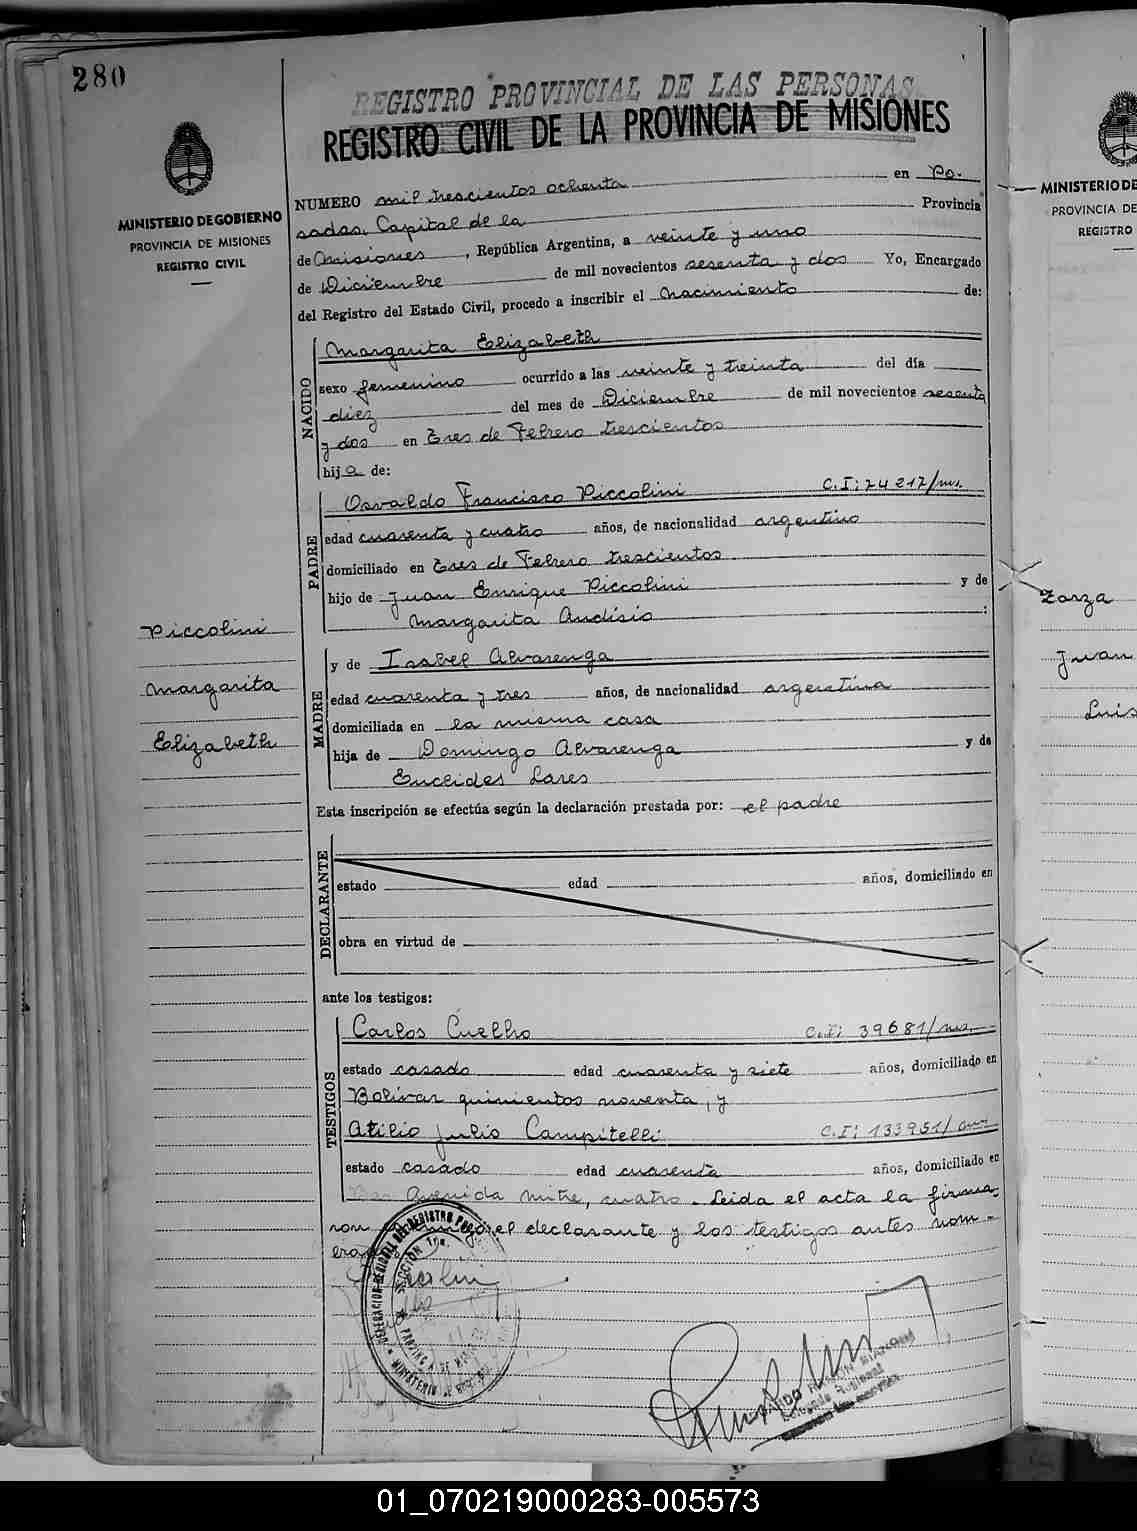 280
REGISTRO PROVINCIAL DE LAS PERSONAS
REGISTRO CIVIL DE LA PROVINCIA DE MISIONES
MINISTERIO DE GOBIERNO
PROVINCIA DE MISIONES
REGISTRO CIVIL
NUMERO mil trescientos ochenta en Po-
sadas, Capital de la Provincia
de Misiones, República Argentina, a veinte y uno
de Diciembre de mil novecientos sesenta y dos Yo, Encargado
del Registro del Estado Civil, procedo a inscribir el nacimiento de:
NACIDO
Margarita Elizabeth
sexo femenino ocurrido a las veinte y treinta del día
diez del mes de Diciembre de mil novecientos sesenta
y dos en Tres de Febrero trescientos
hija de:
PADRE
Osvaldo Francisco Piccolini C.I: 74217/ms.
edad cuarenta y cuatro años, de nacionalidad argentino
domiciliado en Tres de Febrero trescientos
hijo de Juan Enrique Piccolini y de
Margarita Audisio :
Piccolini
Margarita
Elizabeth
MADRE
y de Isabel Alvarenga
edad cuarenta y tres años, de nacionalidad argentina
domiciliada en la misma casa
hija de Domingo Alvarenga y de
Euclides Lares
Esta inscripción se efectúa según la declaración prestada por: el padre
DECLARANTE
estado edad años, domiciliado en
obra en virtud de
ante los testigos:
TESTIGOS
Carlos Cuelho C.I: 39681/ms.
estado casado edad cuarenta y siete años, domiciliado en
Bolívar quinientos noventa, y
Atilio Julio Campitelli C.I: 133951/
estado casado edad cuarenta años, domiciliado en
Avenida Mitre, cuatro. Leida el acta la firma-
ron el declarante y los testigos antes nom-
MINISTERIO DE
PROVINCIA DE
REGISTRO
Zarza
Juan
Luis
01_070219000283-005573